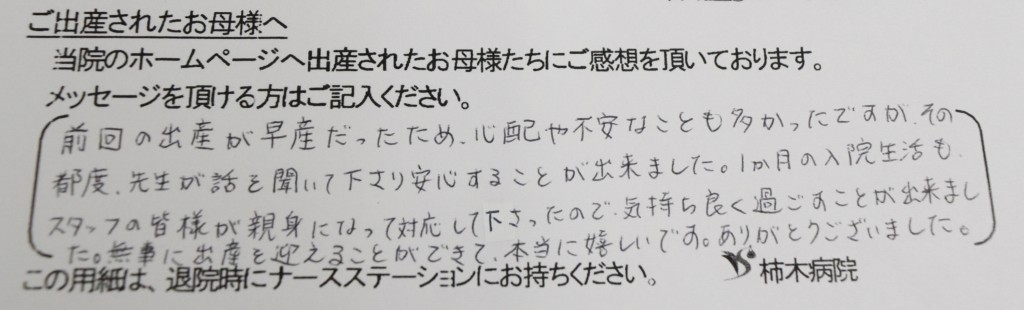 ご出産されたお母様へ
当院のホームページへ出産されたお母様たちにご感想を頂いております。
メッセージを頂ける方はご記入ください。
前回の出産が早産だったため、心配や不安なことも多かったですが、その
都度、先生が話を聞いて下さり安心することが出来ました。1か月の入院生活も、
スタッフの皆様が親身になって対応して下さったので、気持ち良く過ごすことが出来まし
た。無事に出産を迎えることができて、本当に嬉しいです。ありがとうございました。
この用紙は、退院時にナースステーションにお持ちください。
柿木病院